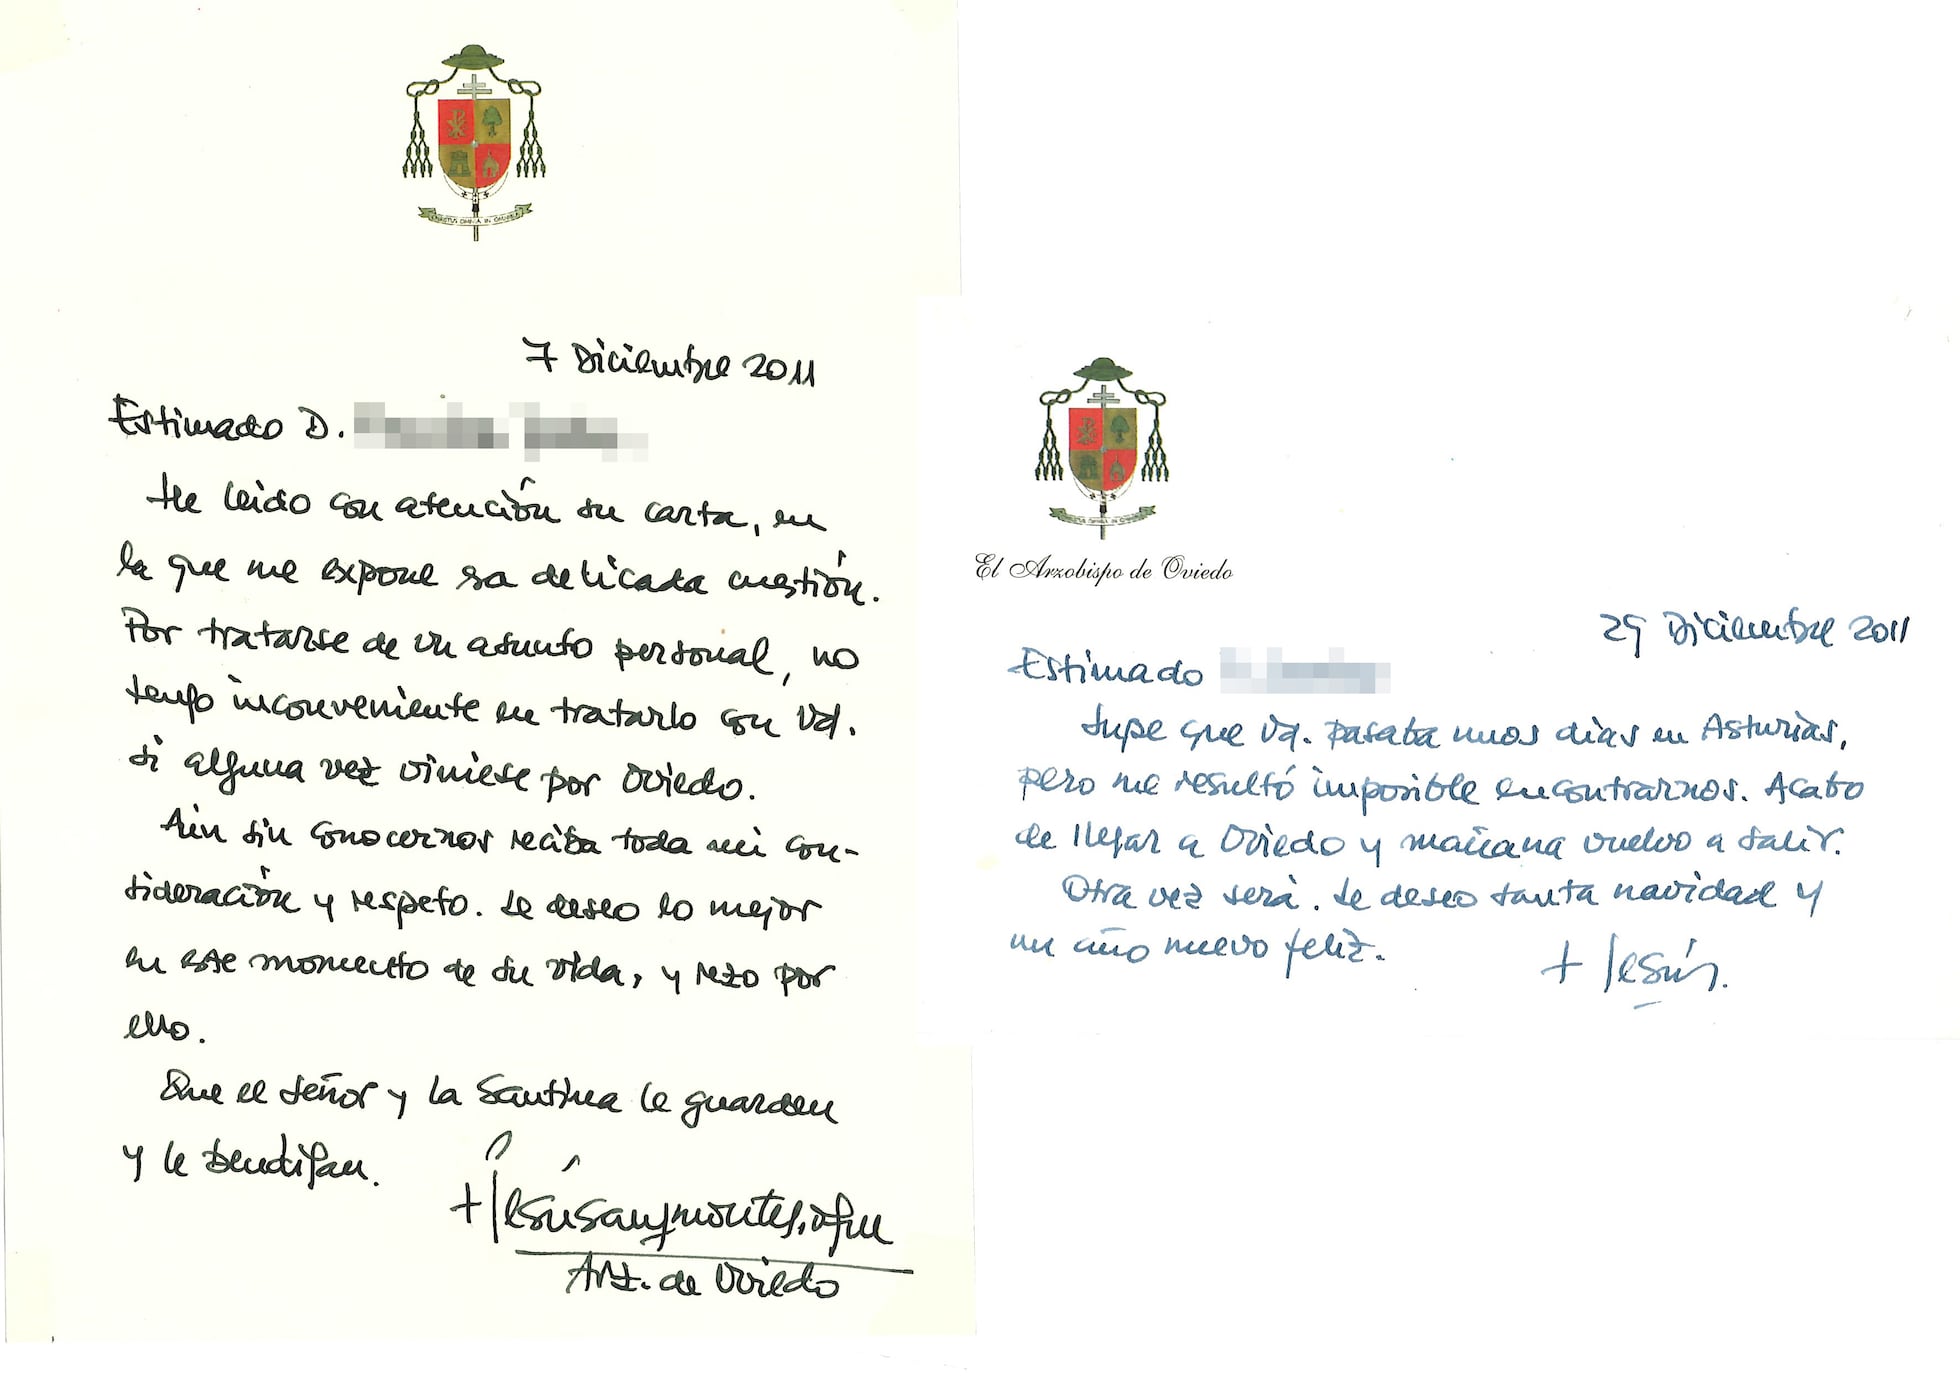 7 Diciembre 2011
Estimado D.
He leído con atención su carta, en
la que me expone esa delicada cuestión.
Por tratarse de un asunto personal, no
tengo inconveniente en tratarlo con Vd.
si alguna vez viniese por Oviedo.
Aún sin conocernos reciba toda mi con-
sideración y respeto. Le deseo lo mejor
en este momento de su vida, y rezo por
ello.
Que el Señor y la Santina le guarden
y le bendigan.
+ Jesús Sanz Montes, ofm
Arz. de Oviedo
El Arzobispo de Oviedo
29 Diciembre 2011
Estimado
Supe que Vd. pasaba unos días en Asturias,
pero me resultó imposible encontrarnos. Acabo
de llegar a Oviedo y mañana vuelvo a salir.
Otra vez será. Le deseo santa navidad y
un año nuevo feliz.
+ Jesús.